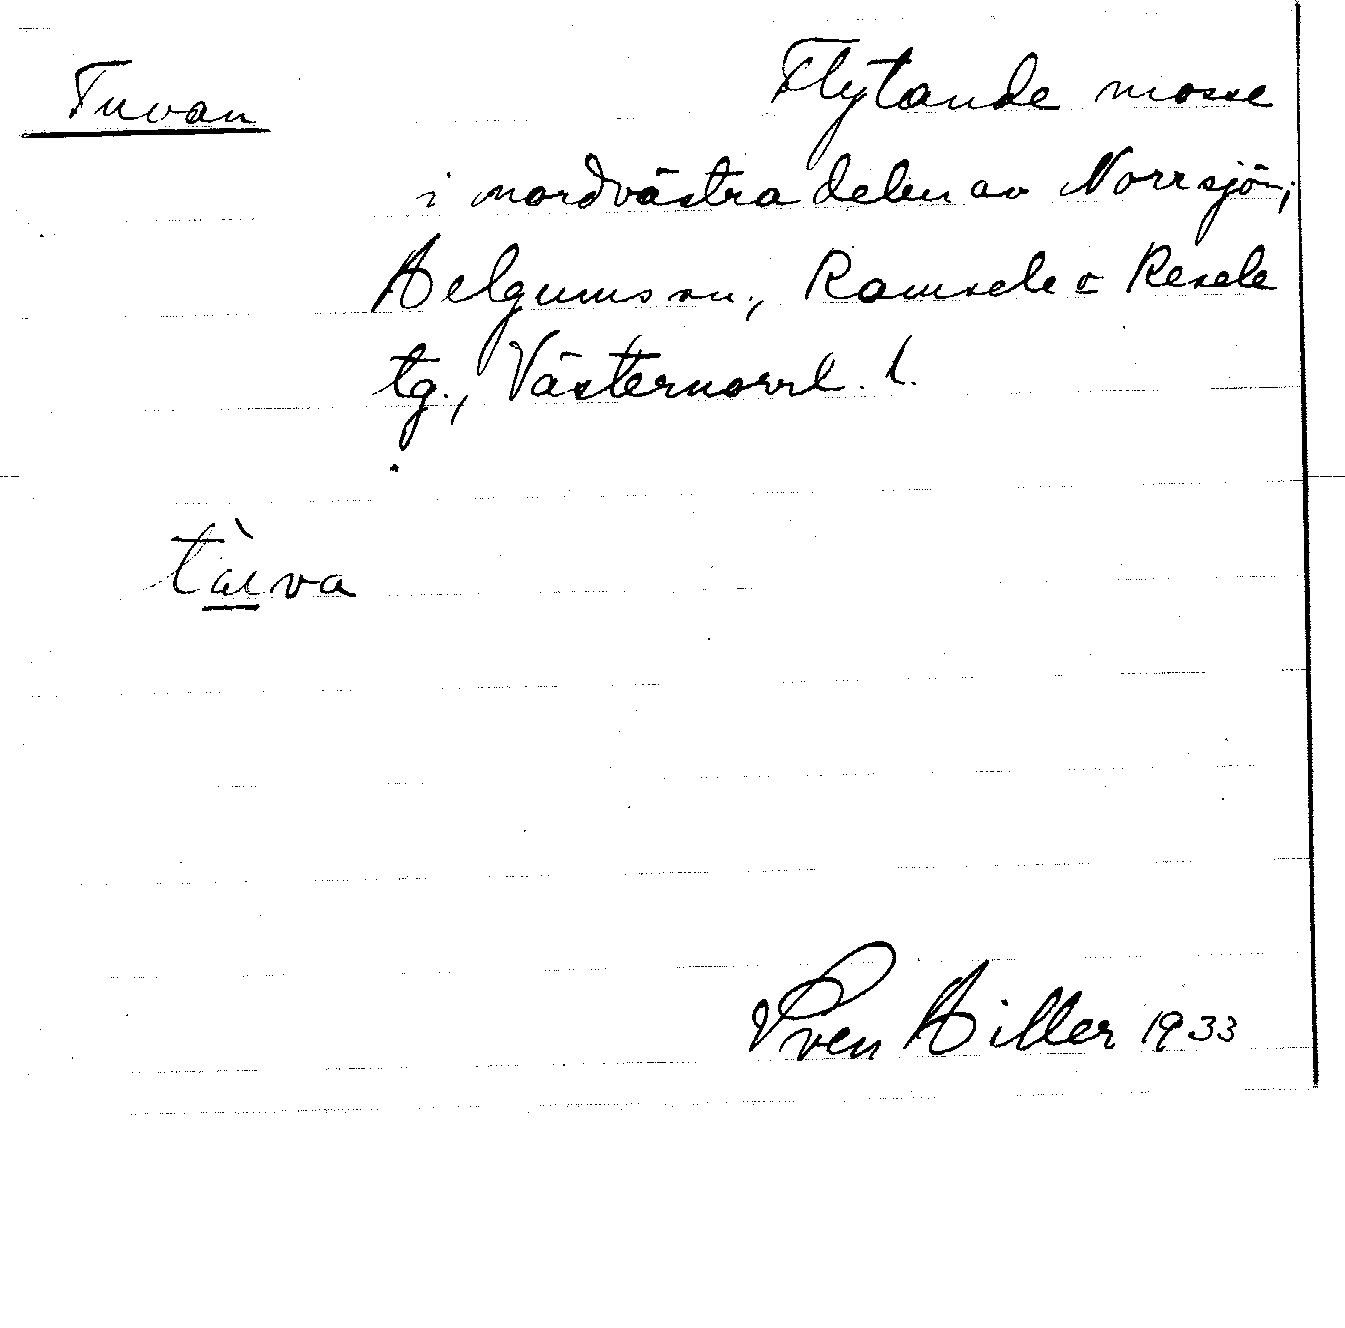 Tuvan
Flytande mosse
i nordvästra delen av Norrsjön,
Helgums sn., Ramsele o Resele
tg., Västernorrl. l.
tàɪva
Sven Hiller 1933